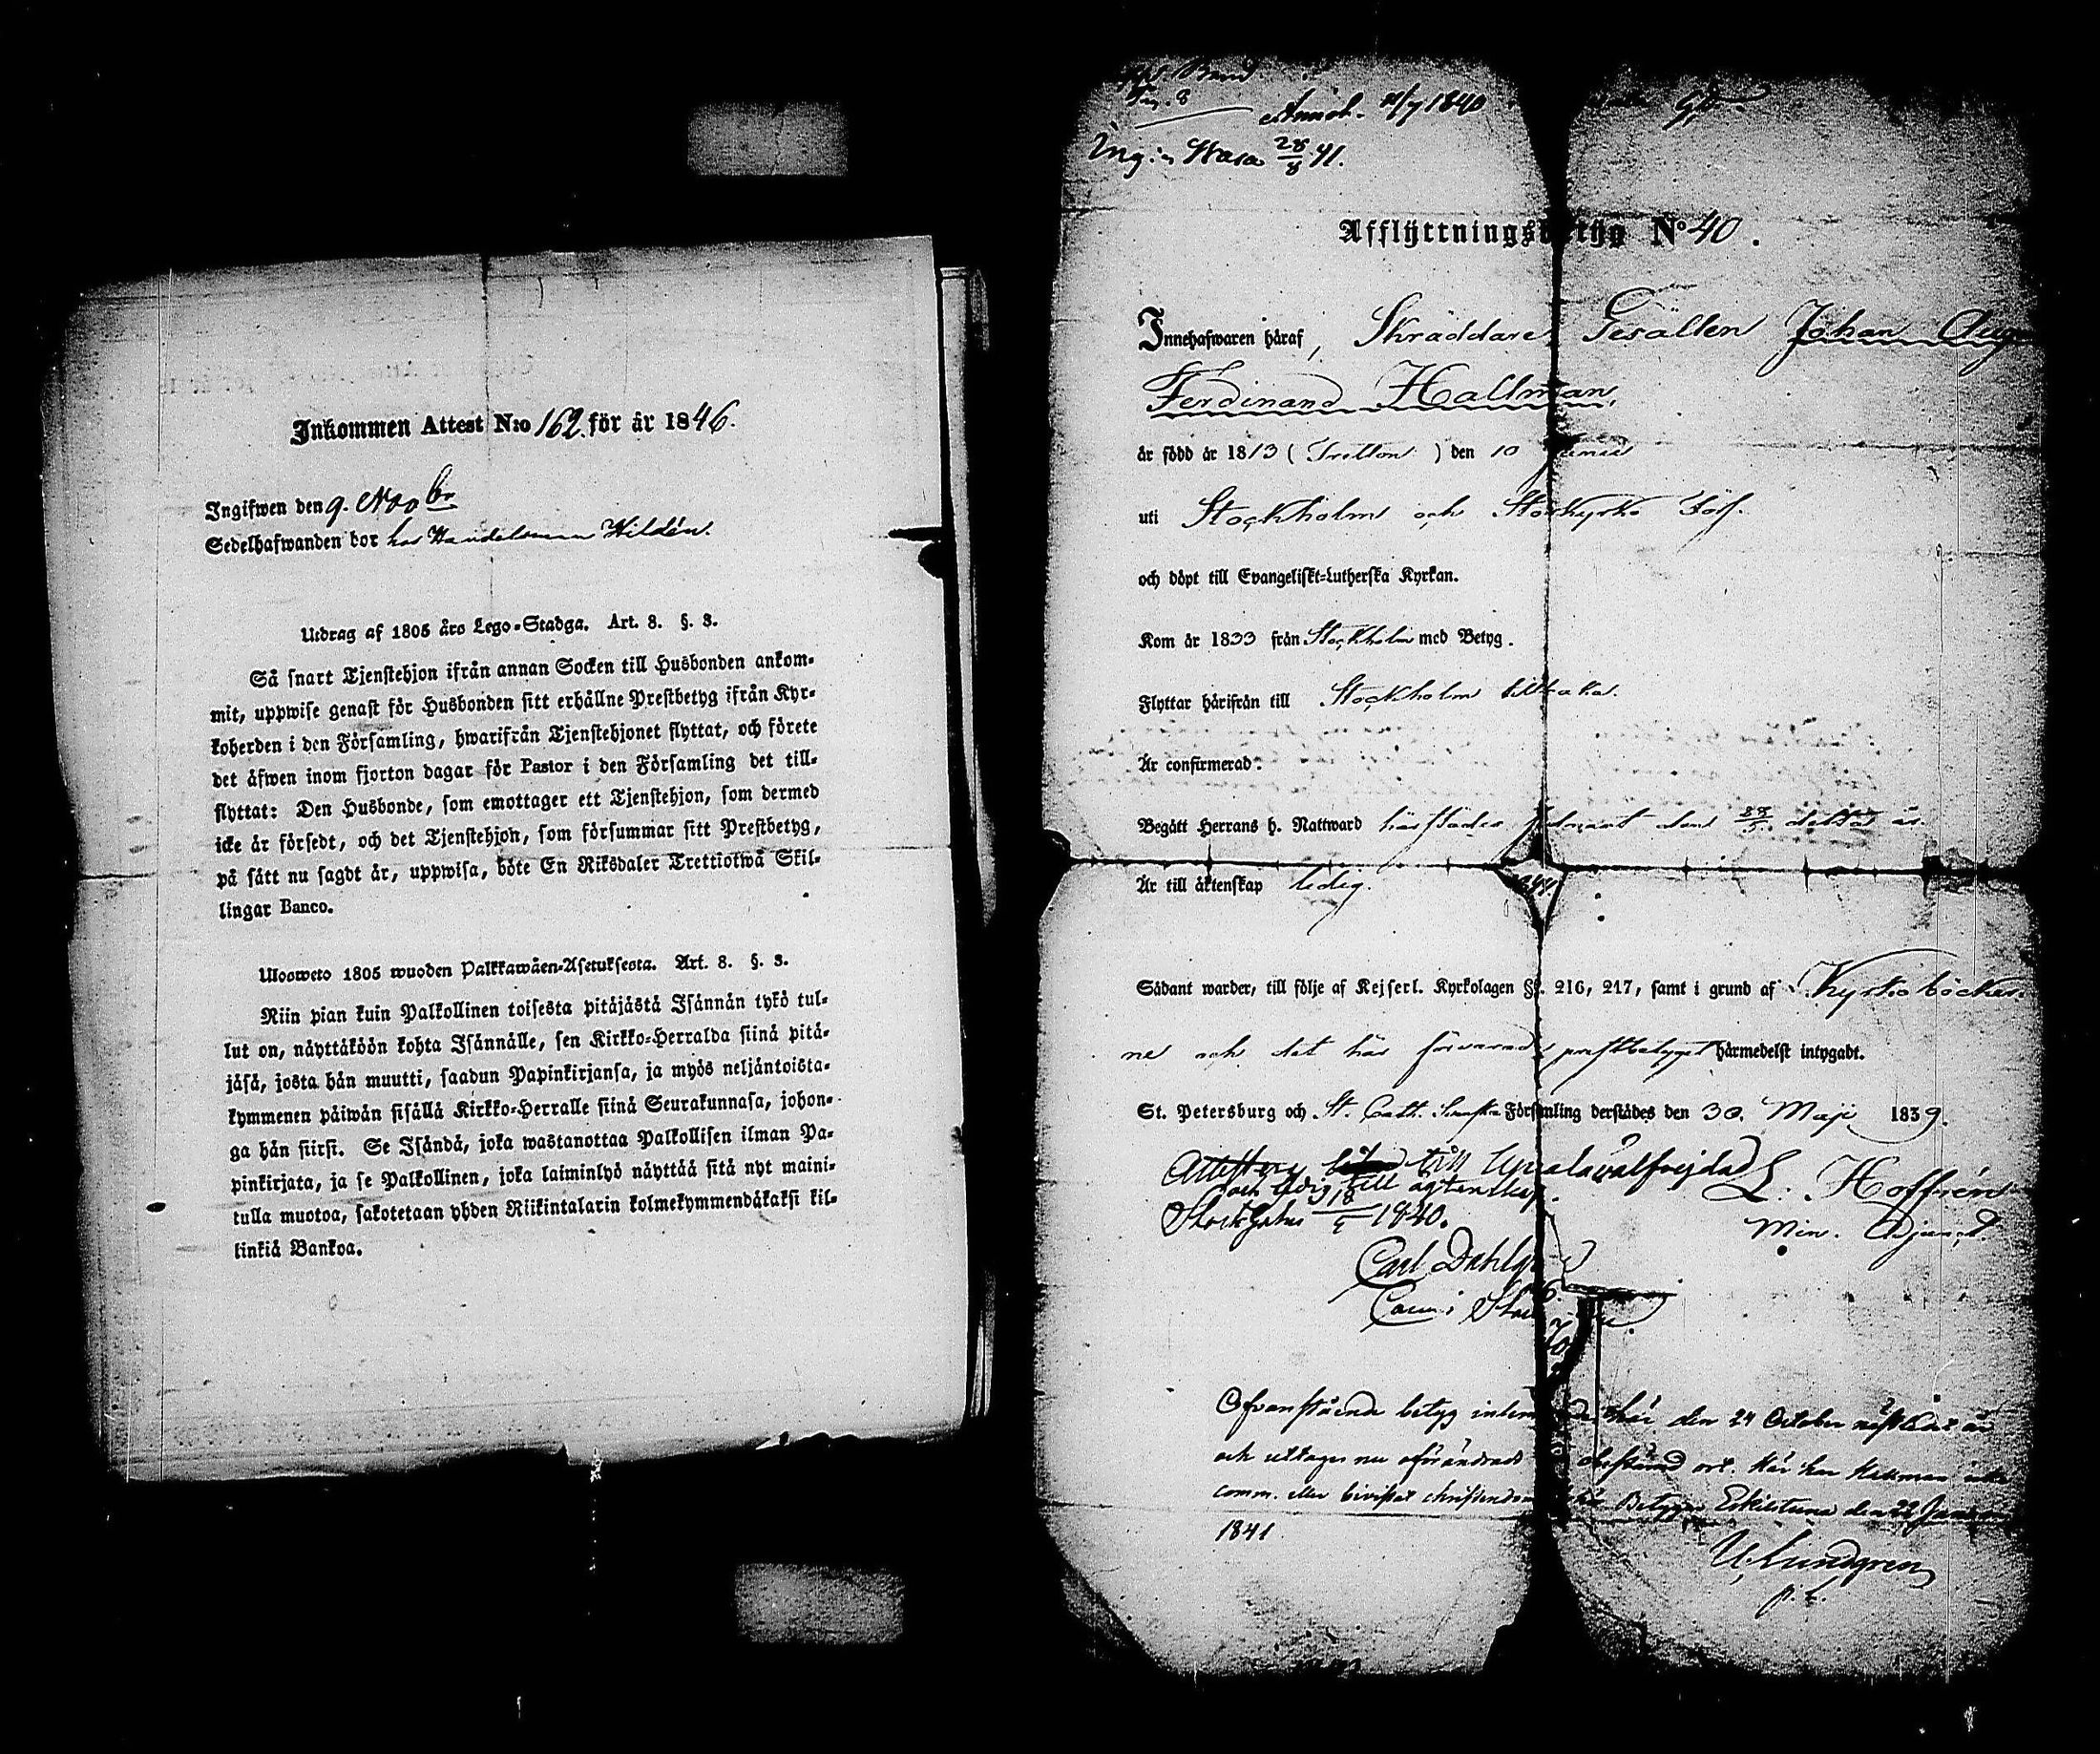 Inkommen Attest N:o 162. för år 1846.
Ingifwen den 9. Novbr
Sedelhafwanden bor hos Handelsman Wildén.
Utdrag af 1805 års Lego-Stadga. Art. 8. §. 3.
Så snart Tjenstehjon ifrån annan Socken till Husbonden ankom-
mit, uppwise genast för Husbonden sitt erhållne Prestbetyg ifrån Kyr-
koherden i den Församling, hwarifrån Tjenstehjonet flyttat, och förete
det äfwen inom fjorton dagar för Pastor i den Församling det till-
flyttat: Den Husbonde, som emottager ett Tjenstehjon, som dermed
icke är försedt, och det Tjenstehjon, som försummar sitt Prestbetyg,
på sätt nu sagdt är, uppwisa, böte En Riksdaler Trettiotwå Skil-
lingar Banco.
Uloosweto 1805 wuoden Palkkawäen-Asetuksesta. Art. 8. §. 3.
Niin pian kuin Palkollinen toisesta pitäjästä Isännän tykö tul-
lut on, näyttäköön kohta Isännälle, sen Kirkko-Herralda siinä pitä-
jäsä, josta hän muutti, saadun Papinkirjansa, ja myös neljäntoista-
kymmenen päiwän sisällä Kirkko-Herralle siinä Seurakunnasa, johon-
ga hän siirsi. Se Isändä, joka wastanottaa Palkollisen ilman Pa-
pinkirjata, ja se Palkollinen, joka laiminlyö näyttää sitä nyt maini-
tulla muotoa, sakotetaan yhden Riikintalarin kolmekymmendäkaksi kil-
linkiä Bankoa.
Pag. 8
Annot. 11/7 1840
Ing. i Wasa 28/8 41.
Afflyttningsbetyg No 40.
Innehafwaren häraf, Skräddare Gesällen Johan Aug
Ferdinand Hallman,
är född år 1813 (Tretton) den 10 Junii
uti Stockholm och Storkyrko Förs.
och döpt till Evangeliskt-Lutherska Kyrkan.
Kom år 1833 från Stockholm med Betyg.
Flyttar härifrån till Stockholm tillbaka.
Är confirmerad.
Begått Herrans h. Nattward härstädes den 28/5 detta år.
Är till äktenskap ledig.
Sådant warder, till följe af Kejserl. Kyrkolagen §§. 216, 217, samt i grund af Kyrkoböcker-
ne och det här förvarade prestbetyget härmedelst intygadt.
St. Petersburg och St. Cath. Svenska Församling derstädes den 30. Maji 1839.
till Upsala välfrejdad L. Hoffrén
och ledig till ägtenskap. Min. Adjunct.
Stockholm 18/5 1840.
Carl Dahlgr
Com. i
Ofvanstående betyg här den 24 October nästl. år
och uttages nu oförändradt ort. Här har Hallman
comm. eller bivistat Eskilstuna den 22
1841
U. Lundgren
p. l.